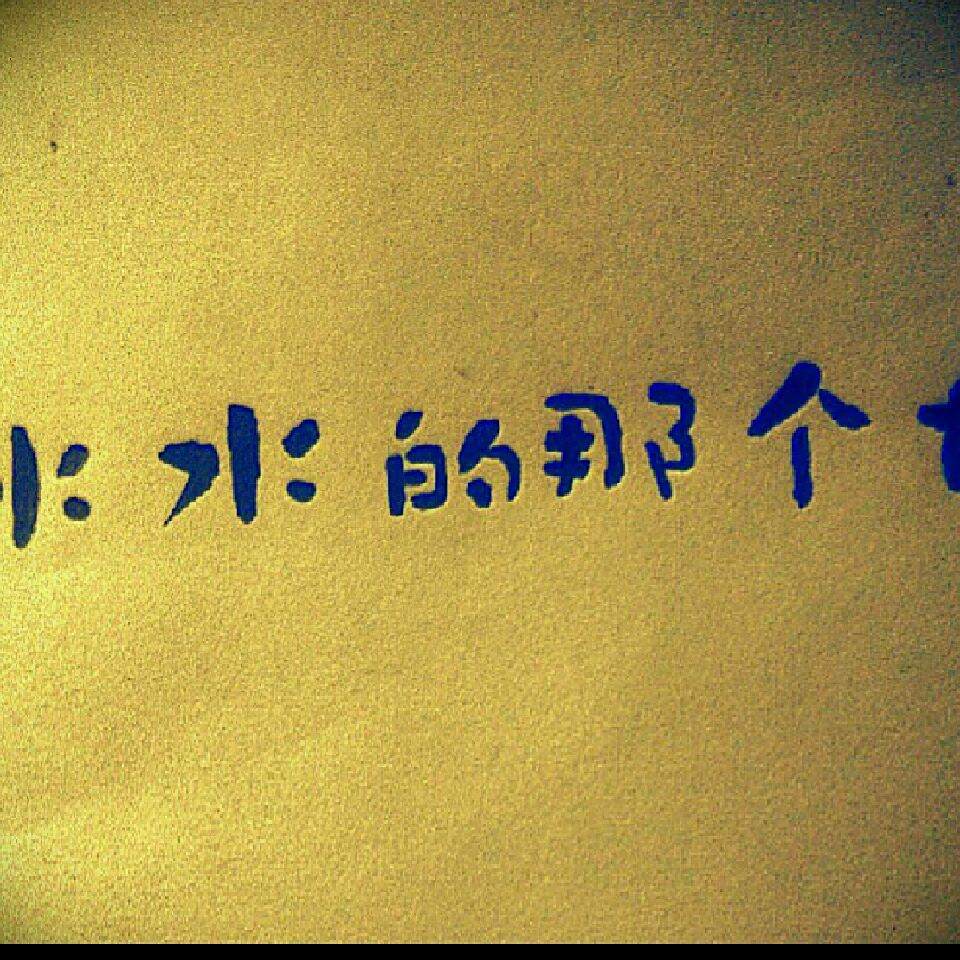 水水的那个